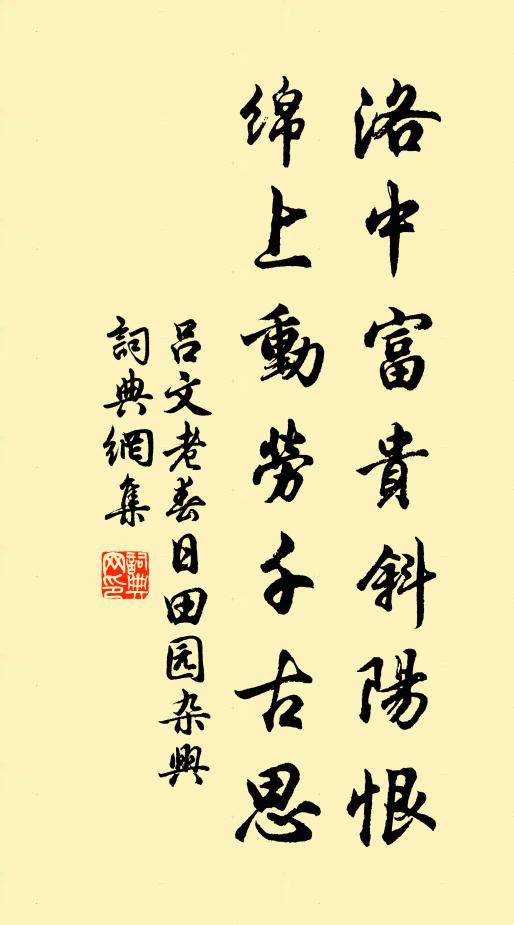 洛中富貴斜陽恨
绵上動勞千古思
吕文老春日田园杂興
詞典網集
詞典网印